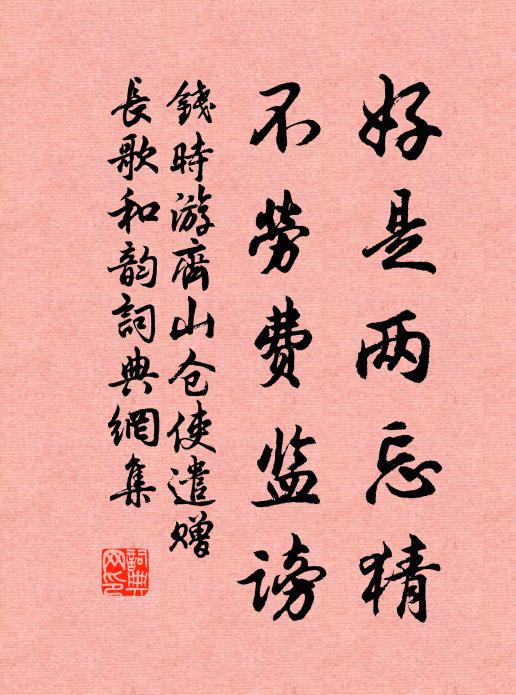 好是两忘猜
不劳费监谤
錢時游齊山仓使遣赠
長歌和韵詞典網集
詞典网印